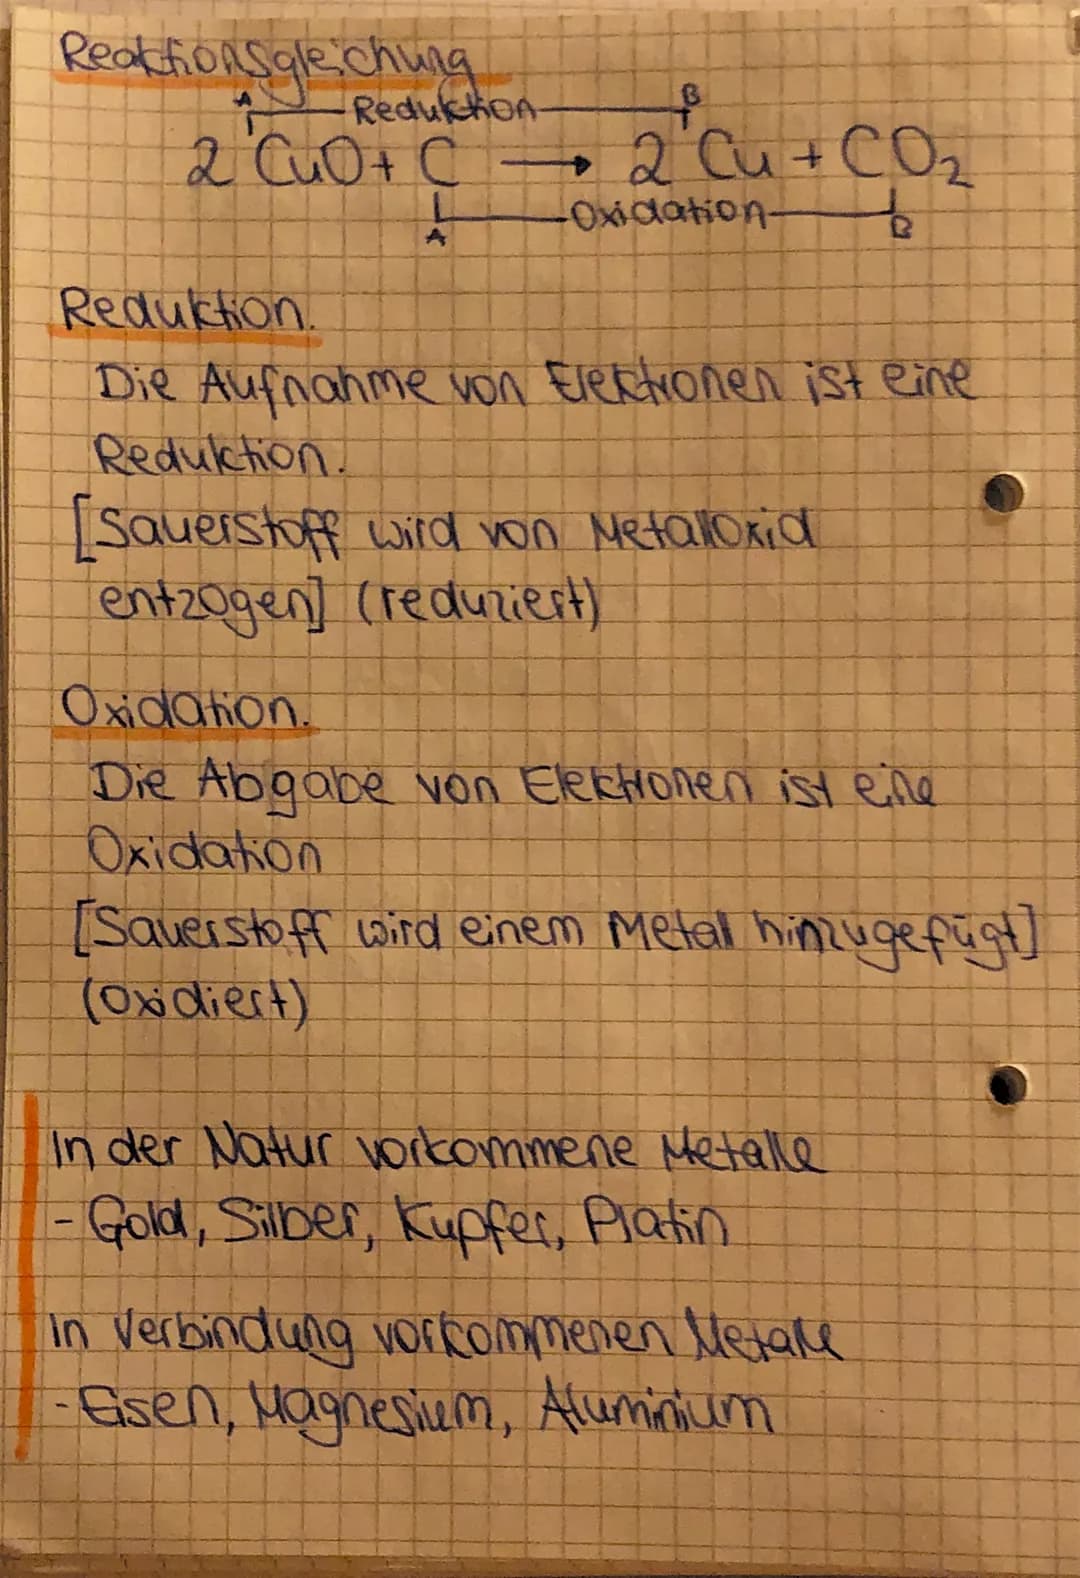 Reaktionsgleichung
A Reduktion B
2 CuO + C → 2 Cu + CO₂
A Oxidation B
Reduktion.
Die Aufnahme von Elektronen ist eine
Reduktion.
[Sauerstoff wird von Metalloxid
entzogen] (reduziert)
Oxidation.
Die Abgabe von Elektronen ist eine
Oxidation
[Sauerstoff wird einem Metall hinzugefügt]
(oxidiert)
In der Natur vorkommene Metalle
- Gold, Silber, Kupfer, Platin
in Verbindung vorkommenen Metalle
- Eisen, Magnesium, Aluminium